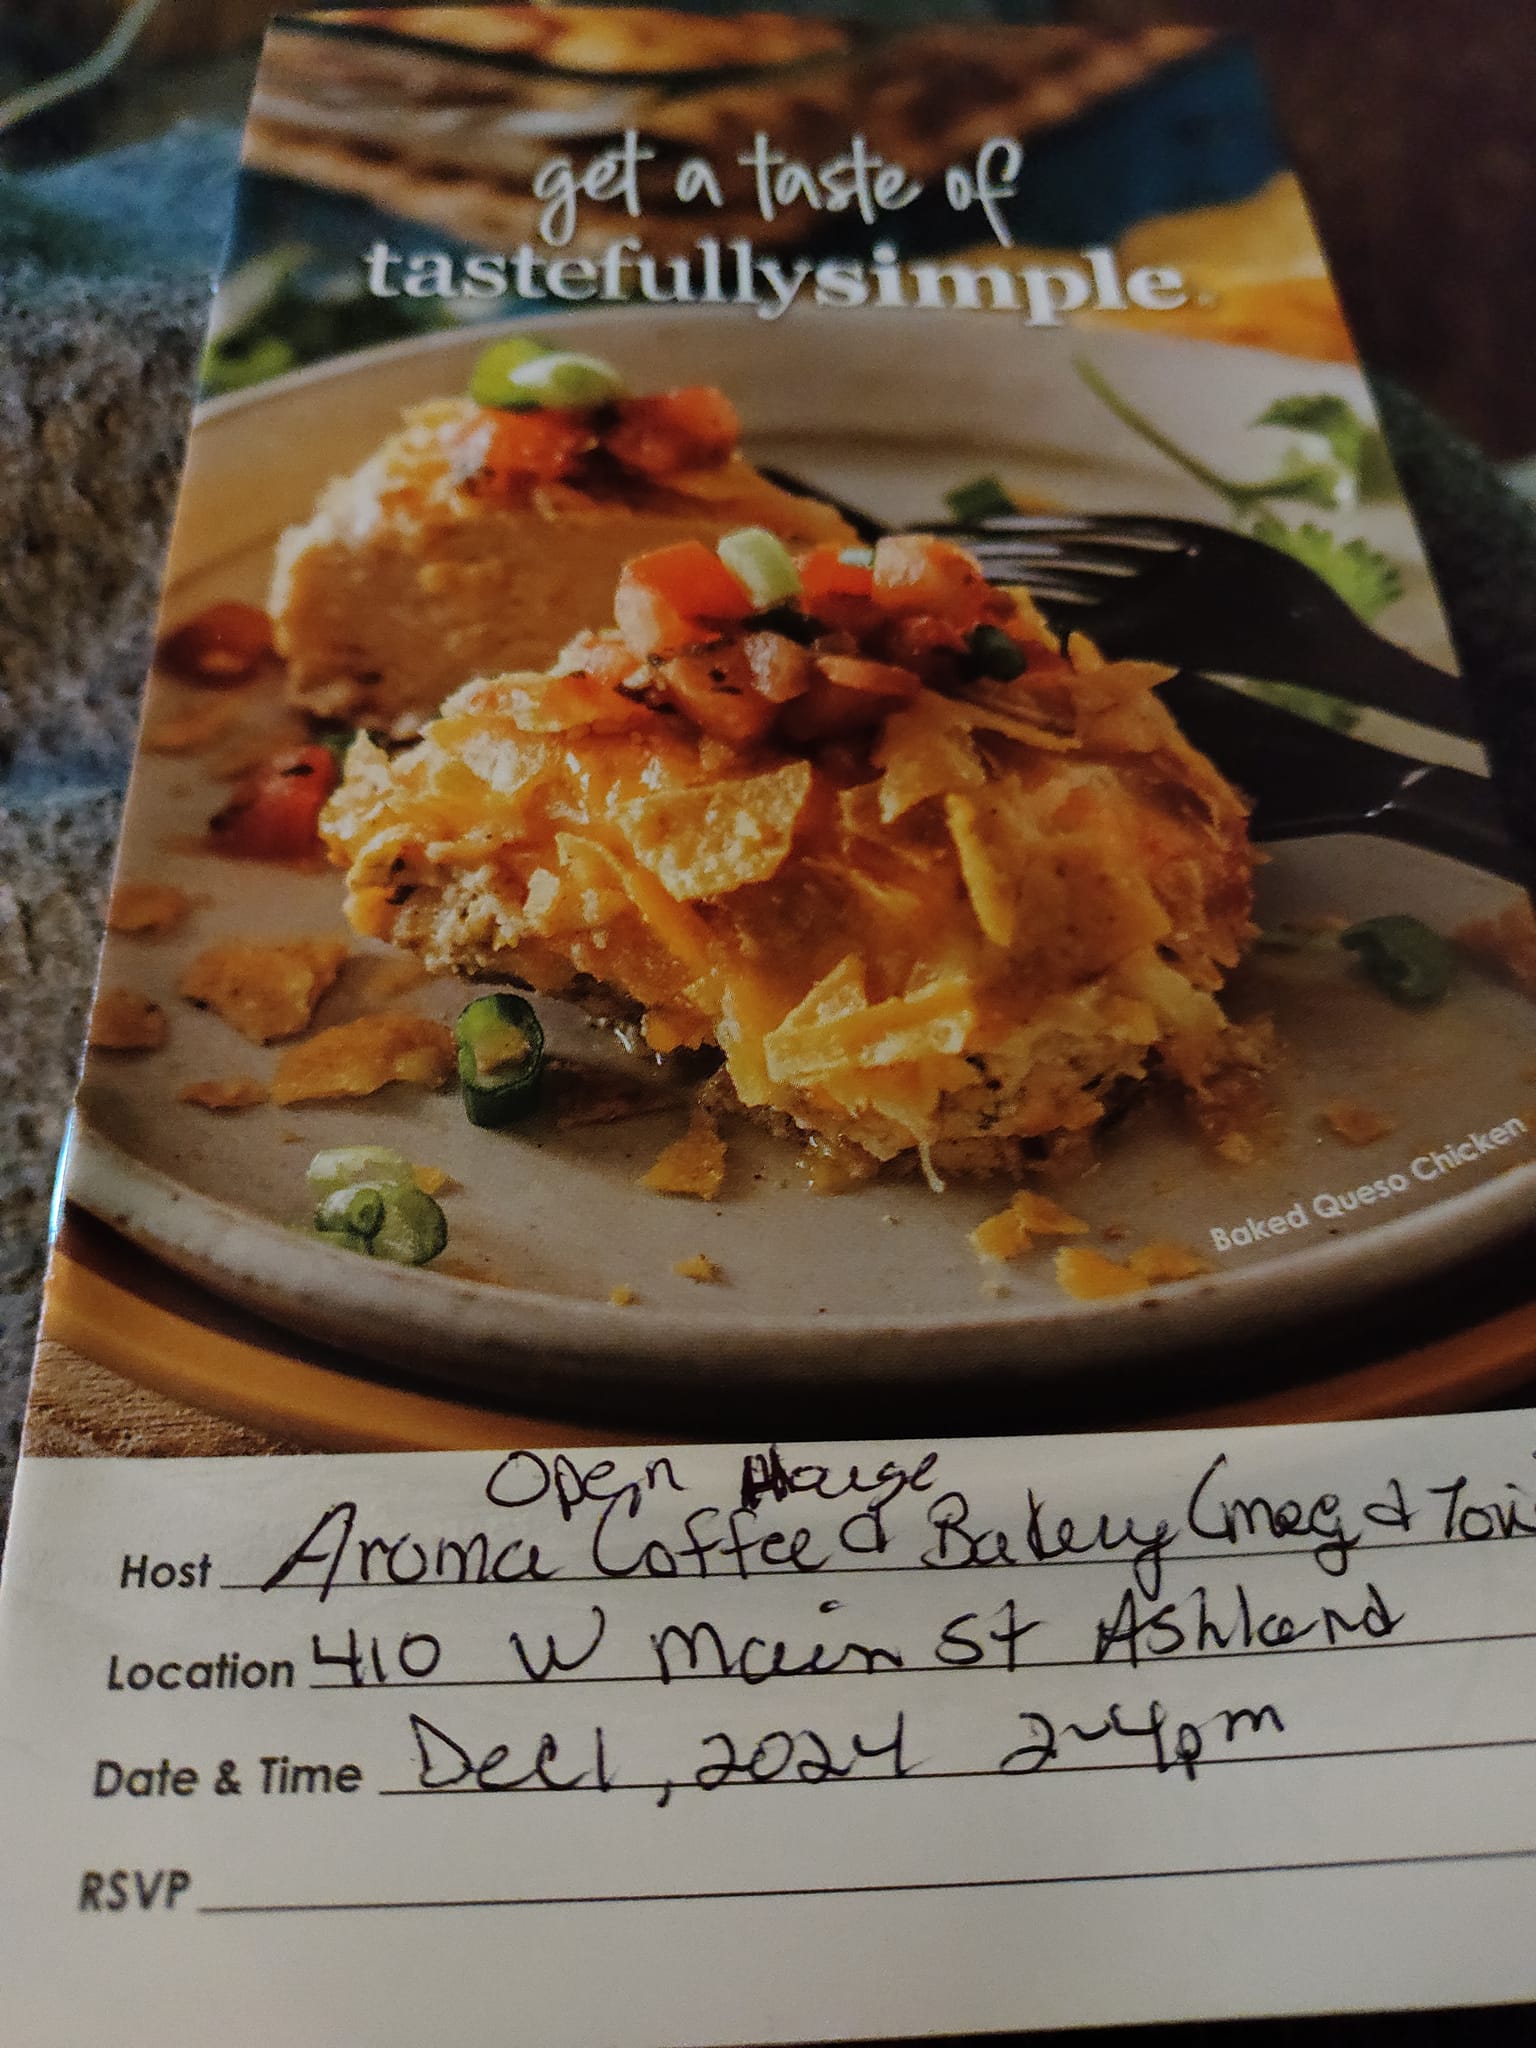 get a taste of
tastefullysimple.
Baked Queso Chicken
Open House
Host Aroma Coffee & Bakery (Meg & Tori
Location 410 W Main St Ashland
Date & Time Dec 1, 2024 2-4pm
RSVP